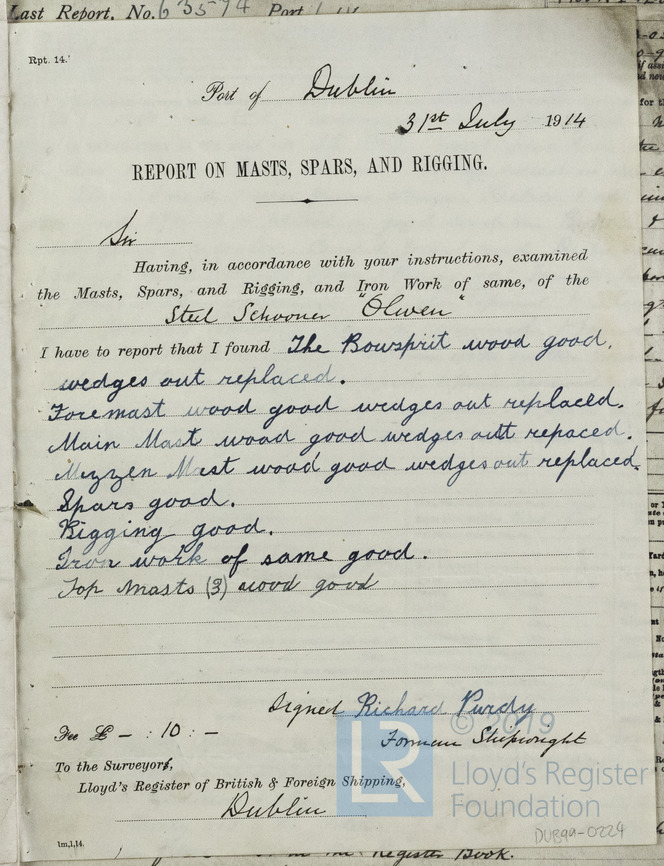 Last Report, No. 63574 Port
Rpt. 14.
Port of Dublin
31st July 1914
REPORT ON MASTS, SPARS, AND RIGGING.
Sir
Having, in accordance with your instructions, examined
the Masts, Spars, and Rigging, and Iron Work of same, of the
Steel Schooner "Olwen"
I have to report that I found The Bowsprit wood good,
wedges out replaced.
Foremast wood good wedges out replaced.
Main Mast wood good wedges out repaced.
Mizzen Mast wood good wedges out replaced.
Spars good.
Rigging good.
Iron work of same good.
Top Masts (3) wood good
Signed Richard Purdy
Forman Shipwright
Fee £ - : 10 : -
To the Surveyors,
Lloyd's Register of British & Foreign Shipping,
Dublin
1m,1,14.
© 2019
LR
Lloyd's Register
Foundation
DUB99-0224
Register Book.